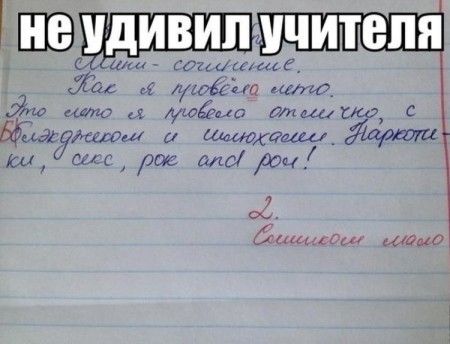 не удивил учителя
Мини - сочинение.
Как я провела лето.
Это лето я провела отлично, с
Блэкджеком и шлюхами. Наркоти-
ки, секс, рок and рол!
2.
Слишком мало